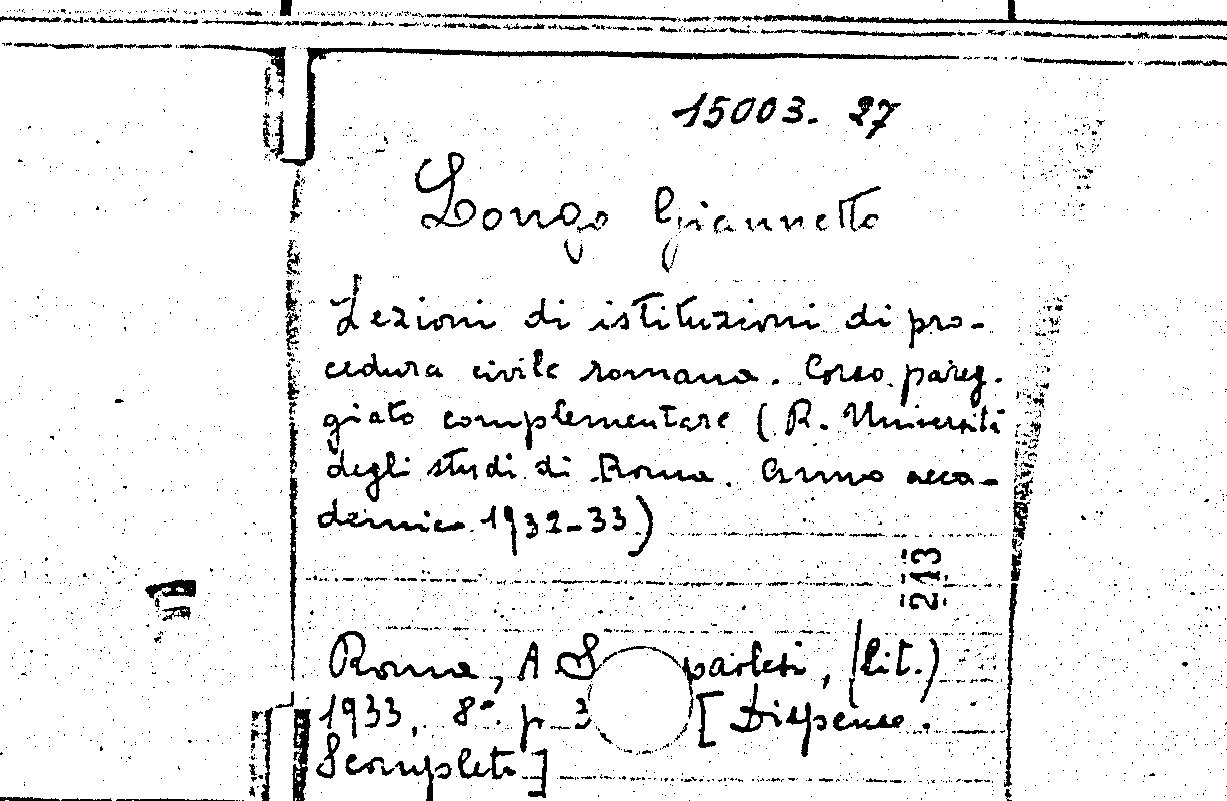 15003. 27
Longo Giannetto
Lezioni di istituzioni di pro-
cedura civile romana. Corso pareg-
giato complementare (R. Università
degli studi di Roma. Anno acca-
demico 1932-33)
213
Roma, A S paolesi, (lit.)
1933, 8°. p 3 [Dispense.
Scomplete]